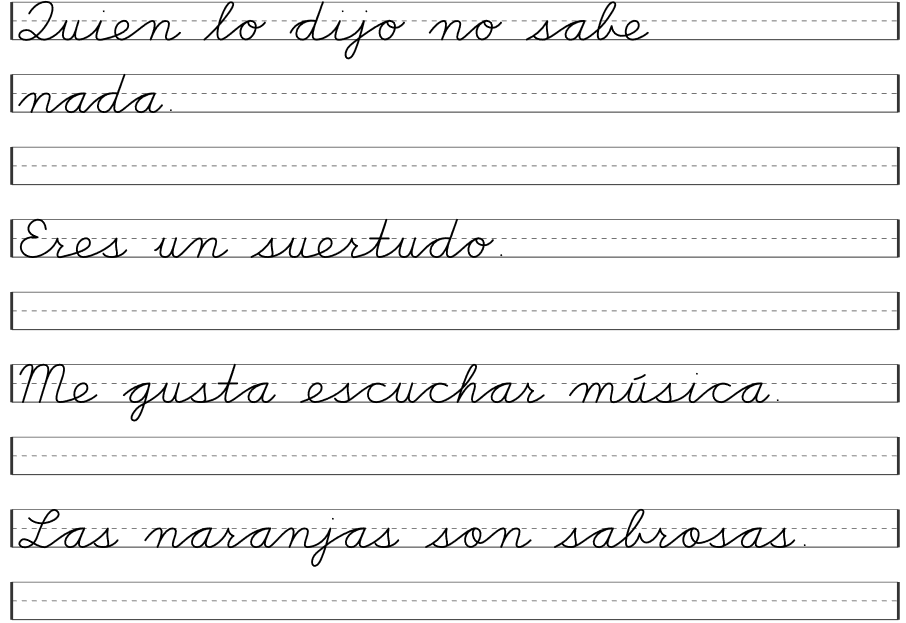 Quien lo dijo no sabe
nada.
Eres un suertudo.
Me gusta escuchar música.
Las naranjas son sabrosas.